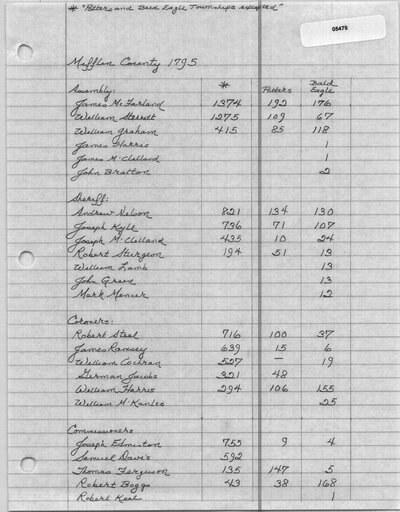 * "Potters and Bald Eagle Townships excepted"
05475
Mifflin County 1795
Assembly: * Potters Bald Eagle
James McFarland 1374 192 176
William Sterrett 1275 109 67
William Graham 415 85 118
James Harris 1
James McClelland 1
John Bratton 2
Sheriff:
Andrew Nelson 821 134 130
Joseph Kyle 736 71 107
Joseph McClelland 435 10 24
Robert Sturgeon 194 51 13
William Lamb 13
John Green 13
Mark Mencer 12
Coroners:
Robert Steel 716 100 37
James Ramsey 639 15 6
William Cochran 527 — 19
German Jacobs 321 48
William Harris 294 106 155
William McKanles 25
Commissioners
Joseph Edmiston 755 9 4
Samuel Davis 592
Thomas Ferguson 135 147 5
Robert Boggs 43 38 168
Robert Keel 1